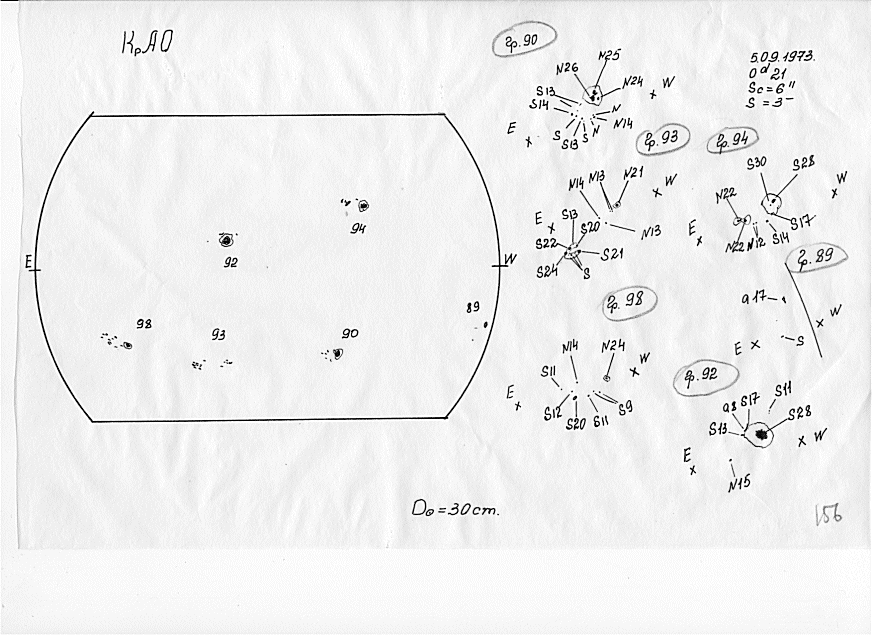 КрАО
E
W
94
92
98
93
90
89
D⊙=30cm.
5.09.1973.
0ᵈ21
Sc=6"
S=3-
Гр.90
N26
N25
N24
W
S13
S14
E
S
S13
S
N
N14
N
Гр.93
N14
N13
N21
W
E
S13
S20
N13
S22
S21
S24
S
Гр.94
S30
S28
W
N22
S17
E
N22
N12
S14
Гр.89
q17
W
S
E
Гр.98
N14
N24
W
S11
E
S12
S20
S11
S9
Гр.92
S11
q8
S17
S28
S13
W
E
N15
156